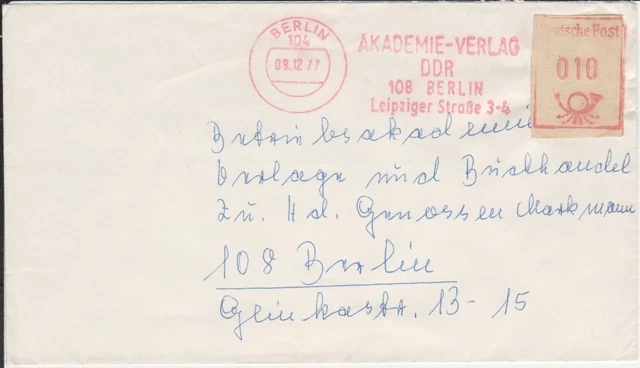 BERLIN
104
09.12.77
AKADEMIE-VERLAG
DDR
108 BERLIN
Leipziger Straße 3-4
Deutsche Post
010
Betriebsakademie
Verlage und Buchhandel
Zu. Hd. Genossen Markmann
108 Berlin
Glinkastr. 13-15